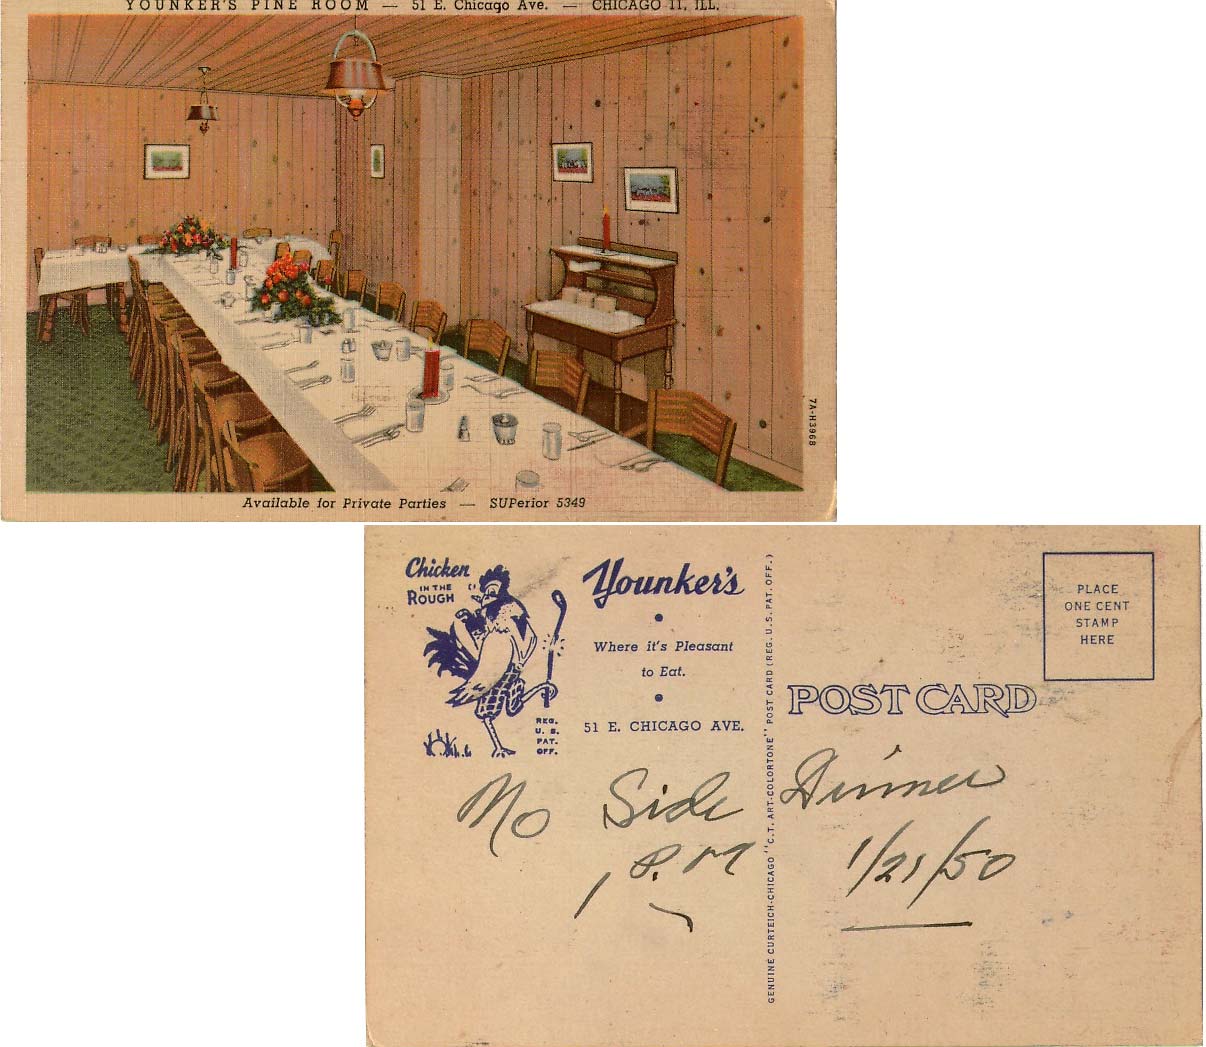 YOUNKER'S PINE ROOM — 51 E. Chicago Ave. — CHICAGO 11, ILL.
7A-H3968
Available for Private Parties — SUPerior 5349
Chicken
IN THE
ROUGH
REG.
U. S.
PAT.
OFF.
Younker's
•
Where it's Pleasant
to Eat.
•
51 E. CHICAGO AVE.
GENUINE CURTEICH-CHICAGO "C.T. ART-COLORTONE" POST CARD (REG. U.S. PAT. OFF.)
PLACE
ONE CENT
STAMP
HERE
POST CARD
No Side Dinner
1 P.M 1/21/50